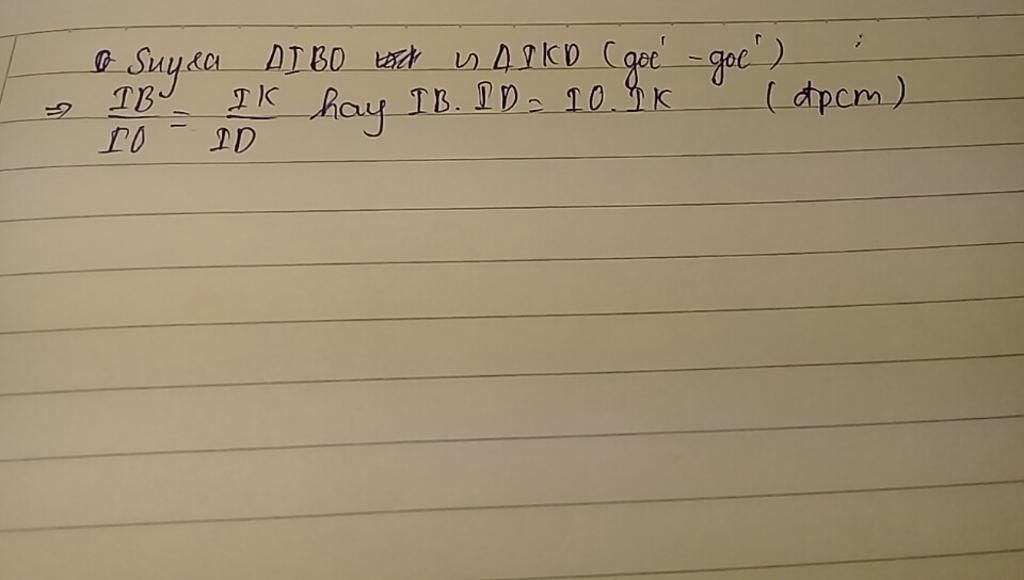 Suy ra ΔIBO ∽ ΔIKD (góc - góc) ;
⇒ IB/IO = IK/ID hay IB. ID = IO. IK (đpcm)